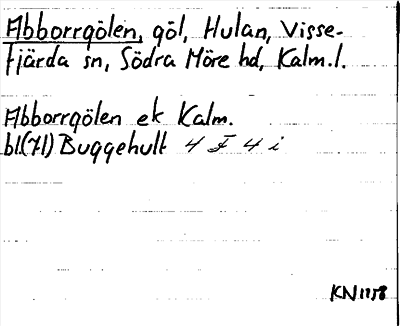 Abborrgölen, göl, Hulan, Visse-
fjärda sn, Södra Möre hd, Kalm.l.
Abborrgölen ek Kalm.
bl(71) Buggehult 4 F 4 i